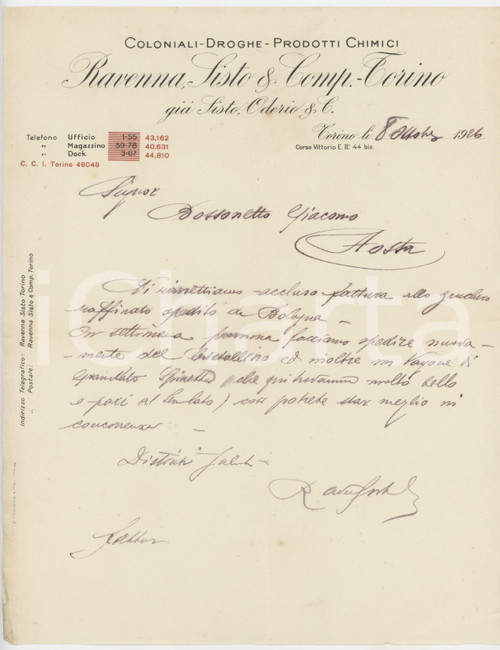 COLONIALI-DROGHE-PRODOTTI CHIMICI
Ravenna, Sisto & Comp.-Torino
già Sisto, Oderio & C.
Torino li 8 Ottobre 1926
Corso Vittorio E. II: 44 bis.
Telefono Ufficio 1-55 43,162
" Magazzino 59-78 40,631
" Dock 3-07 44,810
C. C. I. Torino 48048
Signor
Bossonetto Giacomo
Aosta
Vi rimettiamo accluso fattura allo zucchero
raffinato spedito da Bologna
In settimana faciamo spedire nuova-
mente del cristallino ed inoltre un vagone di
granulato che molto bello
e pari al così potete star meglio in
concorrenza
Distinti Saluti
Fattura
Indirizzo Telegrafico: Ravenna Sisto Torino
" Postale: Ravenna Sisto & Comp. Torino
iCharta